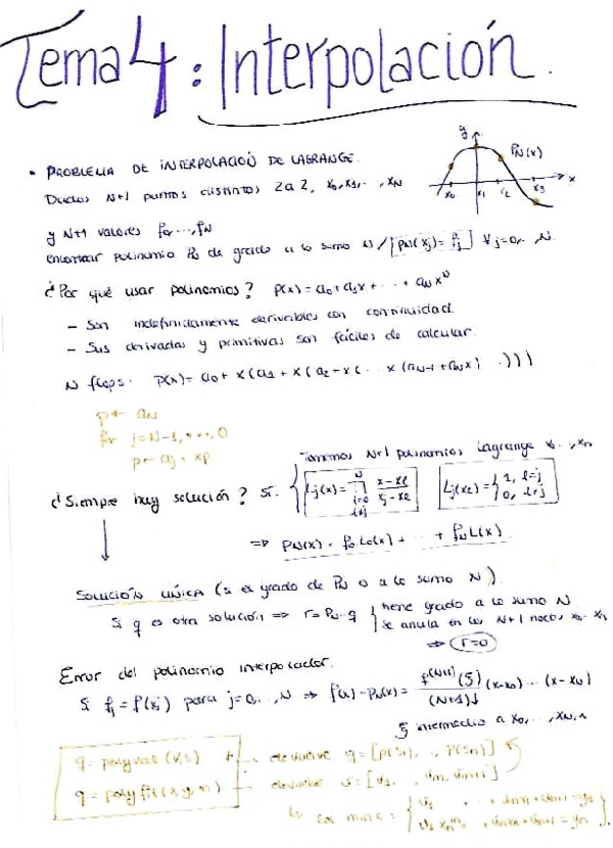 Tema 4: Interpolación.
• PROBLEMA DE INTERPOLACIÓN DE LAGRANGE.
Dados N+1 puntos distintos 2 a 2, x₀, x₁, ..., x_N
y N+1 valores f₀, ..., f_N
encontrar polinomio P_N de grado a lo sumo N / [P_N(x_j) = f_j] ∀ j=0,..,N.
y
P_N(x)
x₀ x₁ x₂ x₃ x
¿Por qué usar polinomios? p(x) = a₀ + a₁x + ... + a_N x^N
- Son indefinidamente derivables con continuidad.
- Sus derivadas y primitivas son fáciles de calcular.
N flops: p(x) = a₀ + x(a₁ + x(a₂ + x(... x(a_{N-1} + a_N x)...)))
p ← a_N
for j=N-1, ..., 0
p ← a_j + xp
Tomemos N+1 polinomios Lagrange x₀...x_N
¿Siempre hay solución? Sí. { L_j(x) = ∏_{l=0, l≠j}^{N} (x-x_l)/(x_j-x_l) L_j(x_l) = { 1, l=j
0, l≠j
⇒ P_N(x) = f₀L₀(x) + ... + f_N L(x).
SOLUCIÓN ÚNICA (si el grado de P_N es a lo sumo N).
Si q es otra solución ⇒ r = P_N - q { tiene grado a lo sumo N
se anula en los N+1 nodos, x₀...x_N
⇒ r=0
Error del polinomio interpolador.
Si f_j = f(x_j) para j=0,..,N ⇒ f(x) - P_N(x) = f^{(N+1)}(ξ)/(N+1)! (x-x₀)...(x-x_N)
ξ intermedio a x₀,..., x_N, x
q = polyval(v,s) devuelve q = [p(s₁), ., p(s_n)]
q = polyfit(x,y,m) devuelve v = [v₁, . v_m, v_{m+1}]